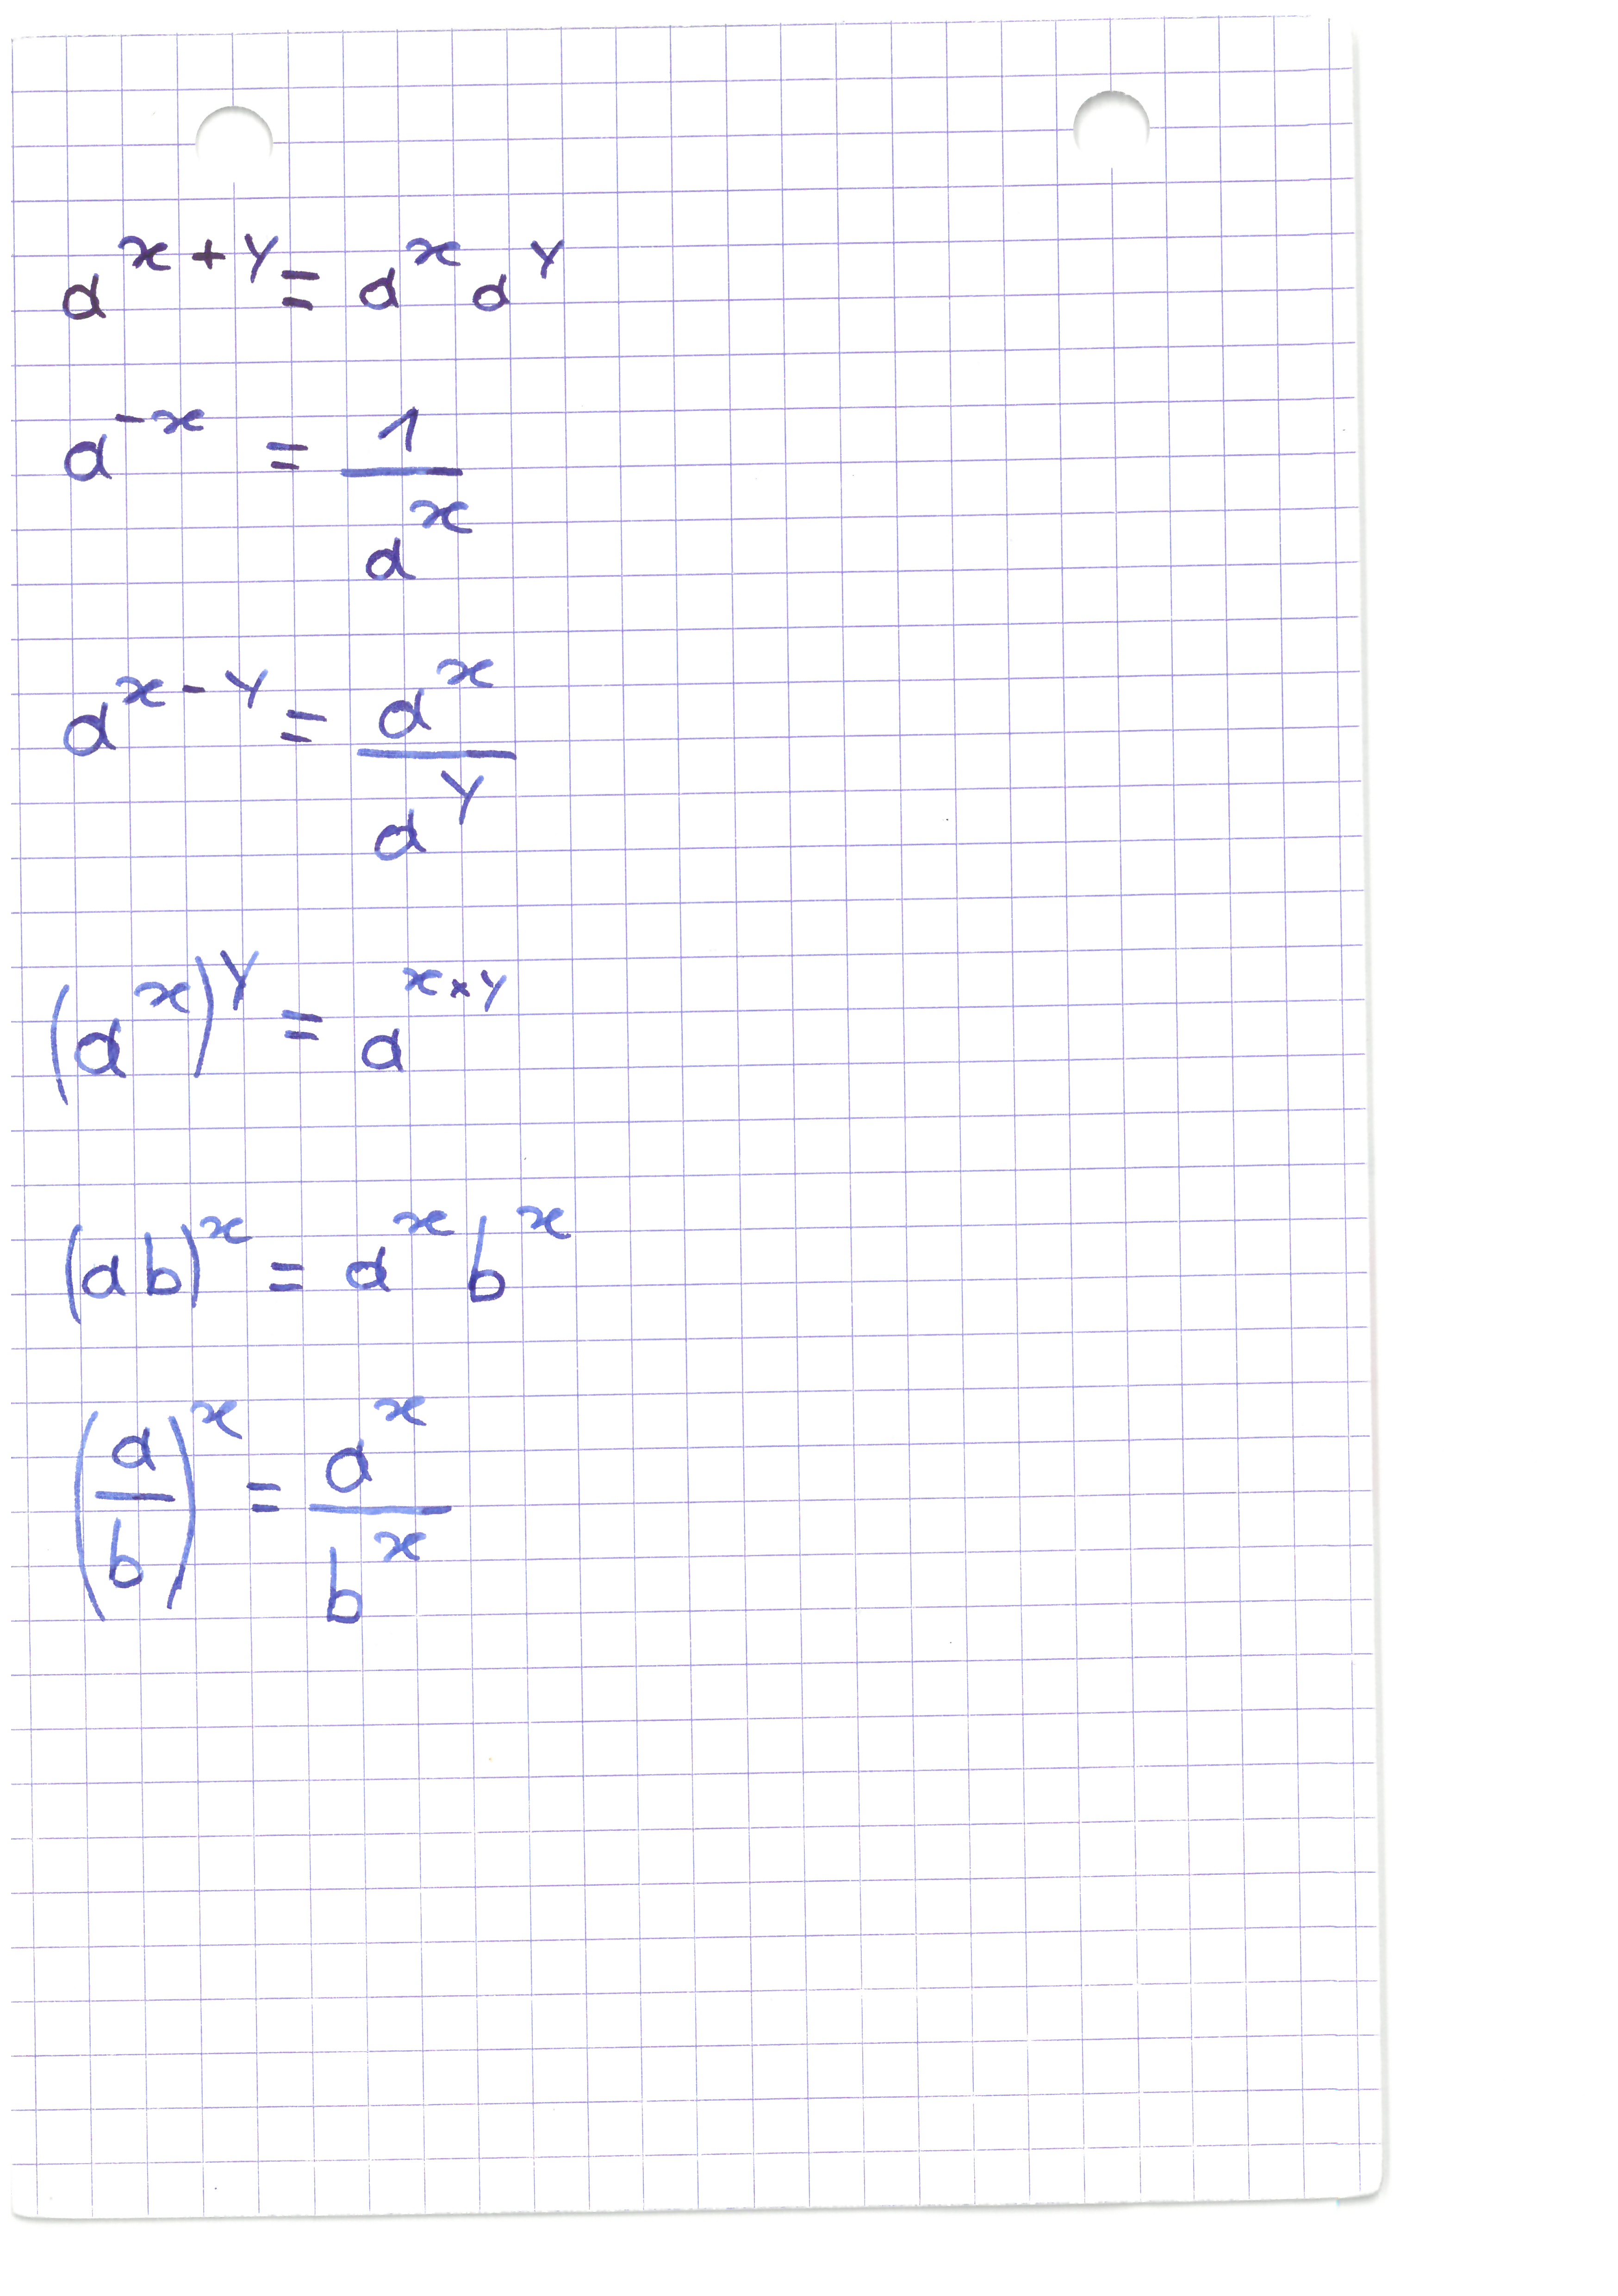 a^{x+y} = a^x a^y
a^{-x} = \frac{1}{a^x}
a^{x-y} = \frac{a^x}{a^y}
(a^x)^y = a^{x×y}
(ab)^x = a^x b^x
(\frac{a}{b})^x = \frac{a^x}{b^x}